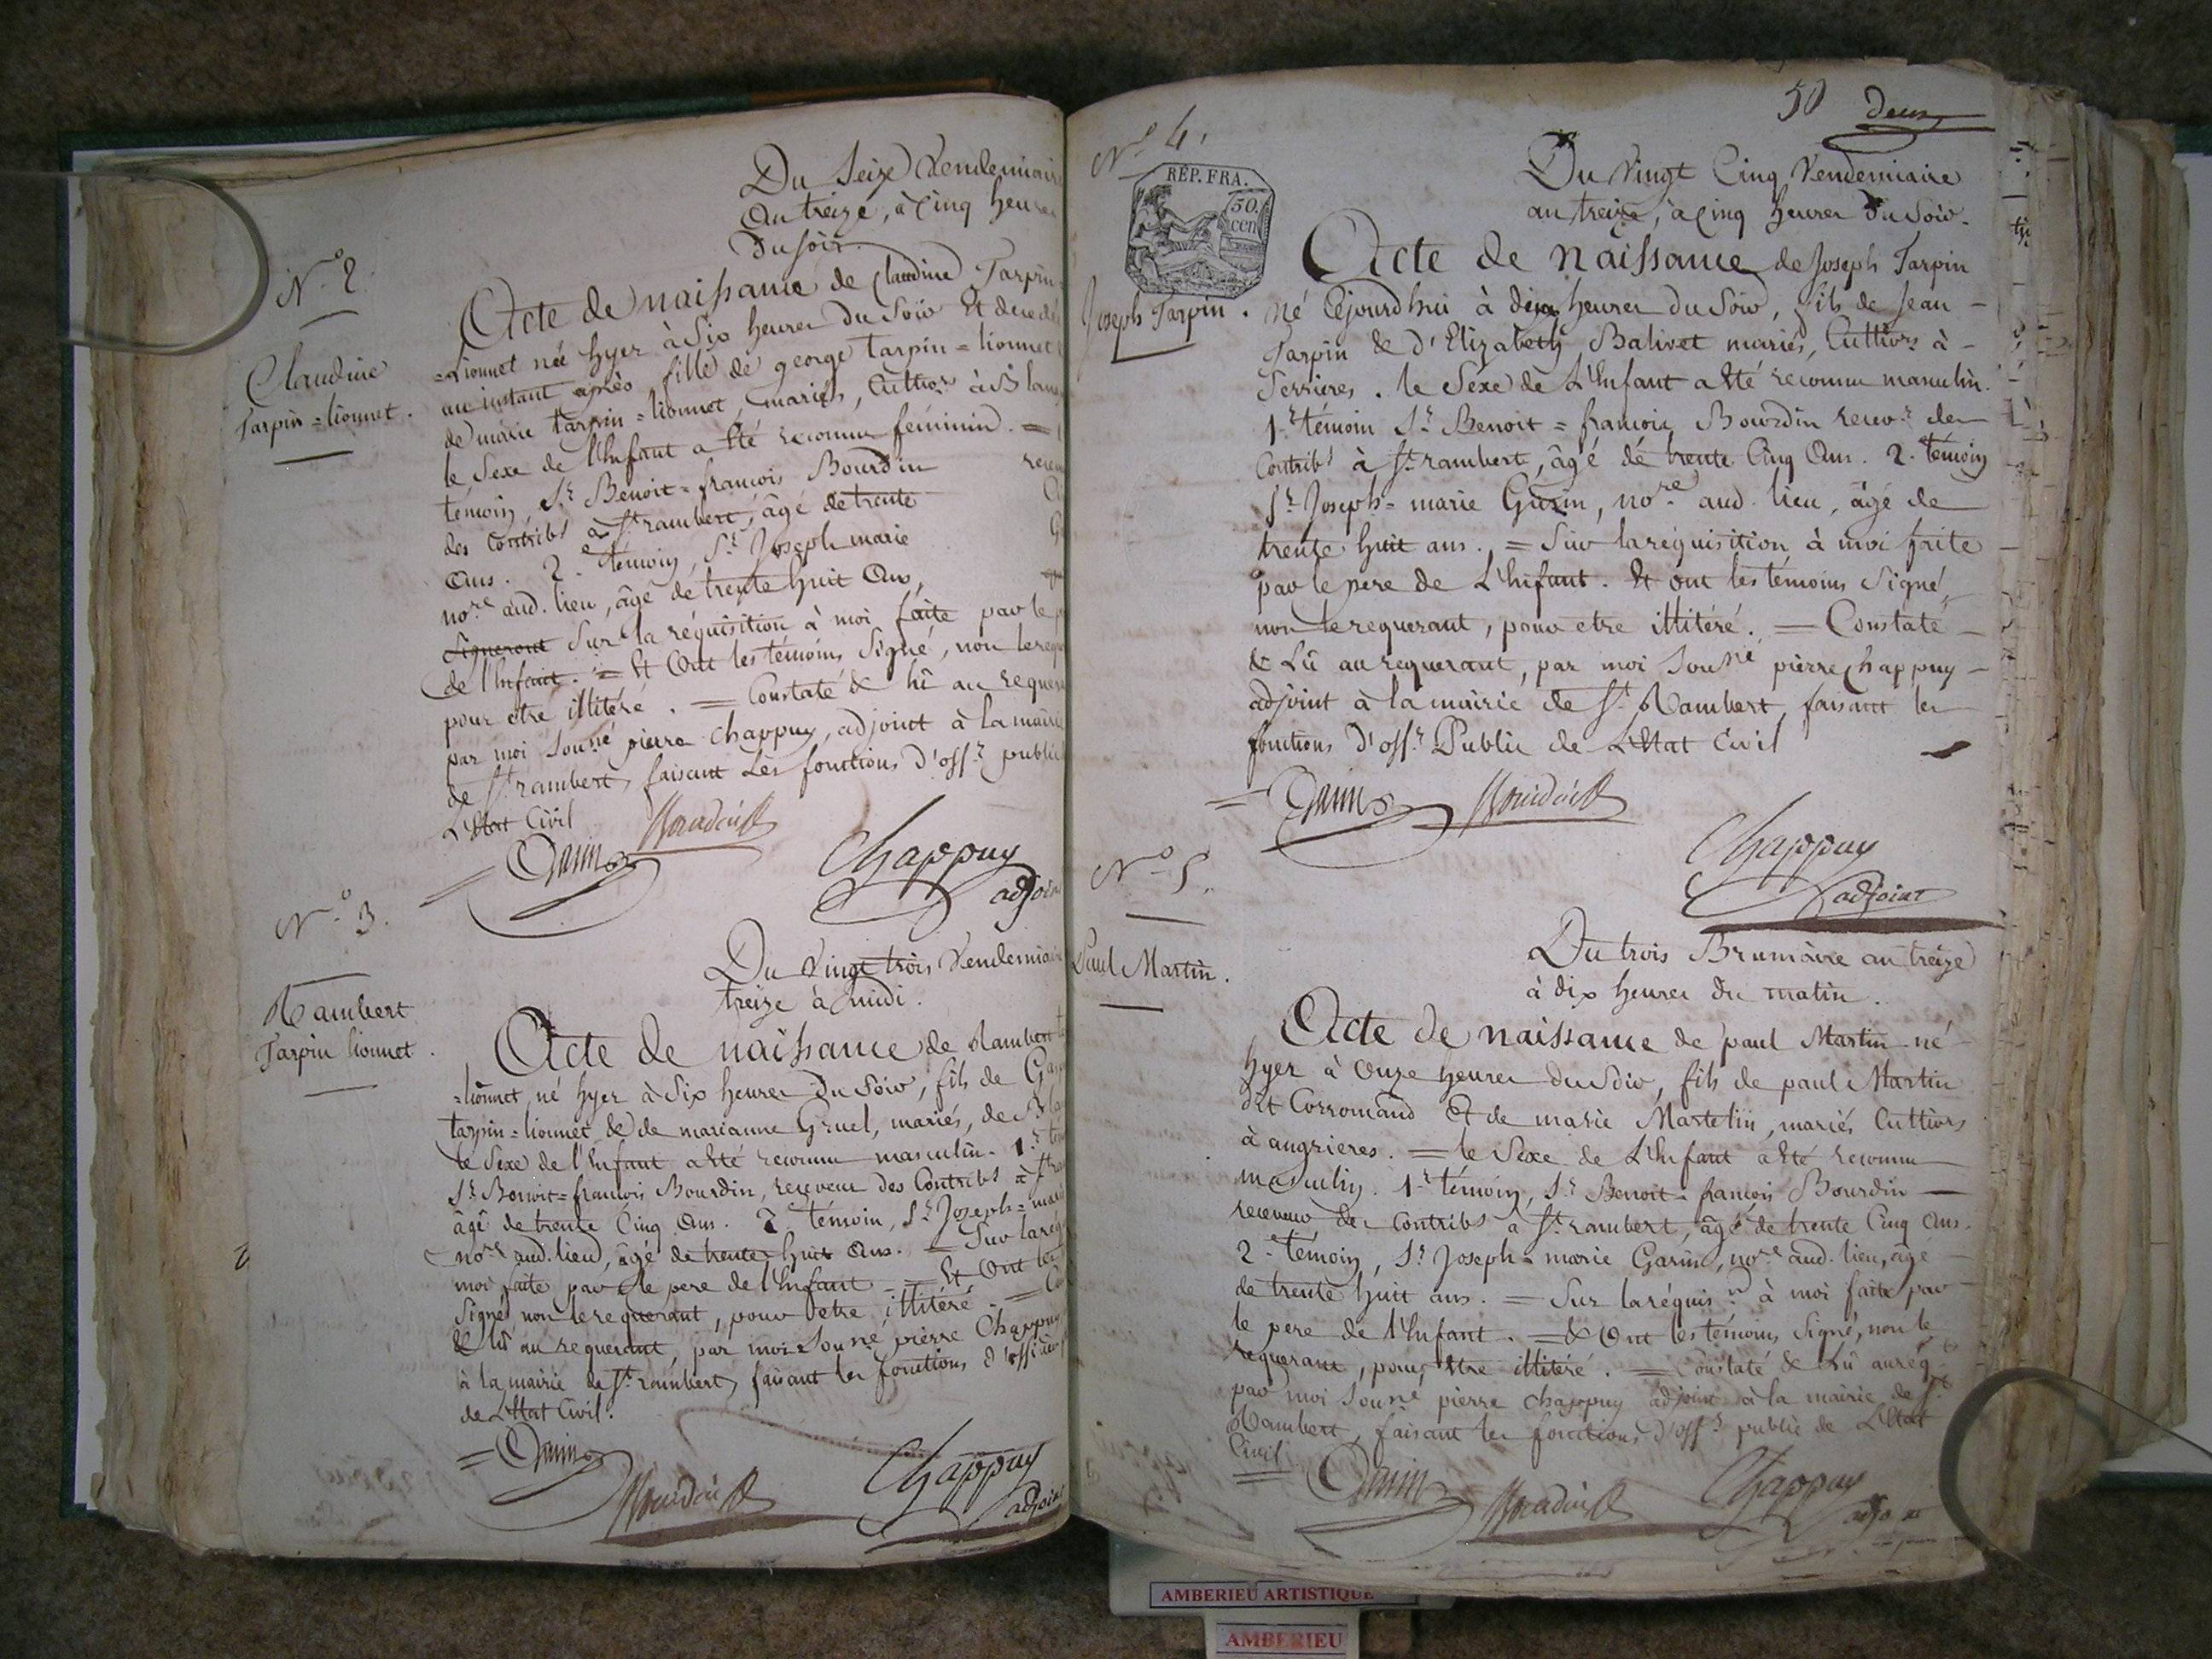 Du Seize Vendemiaire
An treize, à Cinq heures
du soir.
N.o 2.
Claudine
Tarpin=lionnet.
Acte de naissance de Claudine Tarpin=
=lionnet née hyer à Six heures du Soir Et decedé
au instant après fille de george tarpin=lionnet
de marie tarpin=lionnet, mariés, Cultivrs à St
le Sexe de l'Enfant a Eté reconnu féminin. =
témoin, Sr Benoit=francois Bourdin
des Contribs à St rambert, âgé de trente
Ans. 2e témoin, Sr Joseph marie
nore aud. lieu, âgé de trente huit Ans,
Signeront Sur la réquisition à moi faite par le
de l'Enfant. = Et Ont les témoins Signé, non le
pour etre illitéré. = Constaté & lû au
par moi Souné pierre Chappuy, adjoint à la mairie
de St rambert, faisant Les fonctions d'offr public
L'Etat Civil
Bourdin
Chappuy
adjoint
N.o 3.
Rambert
Tarpin lionnet.
Du Vingt trois Vendemiaire
treize à midi.
Acte de naissance de Rambert
=lionnet, né hyer à Six heures du Soir, fils de
tarpin=lionnet & de marianne Gruel, mariés, de St
le Sexe de l'Enfant a Eté reconnu masculin. 1r
Sr Benoit=francois Bourdin, receveur des Contribs à St
âgé de trente Cinq Ans. 2e témoin, Sr Joseph=marie
nore aud. lieu, âgé de trente huit Ans. = Sur la
moi faite par le pere de l'Enfant = Et Ont les
Signé non le requerant, pour etre illitéré. =
& lû au requerant, par moi Souné pierre Chappuy
à la mairie de St rambert, faisant les fonctions d'officier
de L'Etat Civil.
Bourdin
Chappuy
adjoint
50 deux
N.o 4.
REP. FRA.
50.
cen
Joseph Tarpin.
Du Vingt Cinq Vendemiaire
an treize, à Cinq heures du Soir.
Acte de naissance de Joseph Tarpin
né Cejourdhui à deux heures du Soir, fils de Jean
Tarpin & d'Elizabeth Balivet mariés, Cultivrs à
Serrieres. le Sexe de L'Enfant a Eté reconnu masculin.
1r témoin Sr Benoit=francois Bourdin recevr des
Contribs à St rambert, âgé de trente Cinq Ans. 2e témoin
Sr Joseph=marie Garin, nore aud. lieu, âgé de
trente huit ans. = Sur la réquisition à moi faite
par le pere de L'Enfant. Et ont les témoins Signé,
non le requerant, pour etre illitéré. = Constaté
& Lû au requerant, par moi Souné pierre Chappuy
adjoint à la mairie de St Rambert, faisant les
fonctions d'offr Public de L'Etat Civil
Garin Bourdin
Chappuy
adjoint
N.o 5.
Paul Martin.
Du trois Brumaire an treize
à dix heures du matin.
Acte de naissance de paul Martin né
hyer à Onze heures du Soir, fils de paul Martin
dit Corromand Et de marie Martelin, mariés Cultivrs
à angrieres. = le Sexe de L'Enfant a Eté reconnu
masculin. 1r témoin, Sr Benoit=francois Bourdin
receveur des Contribs à St rambert, âgé de trente Cinq Ans.
2e témoin, Sr Joseph=marie Garin, nore aud. lieu, âgé
de trente huit ans. = Sur la réquisn à moi faite par
le pere de l'Enfant. = & Ont les témoins Signé, non le
requerant, pour Etre illitéré. = Constaté & Lû au reqt
par moi Souné pierre Chappuy adjoint à la mairie de St
Rambert, faisant les fonctions d'offr public de L'Etat
Civil
Garin Bourdin Chappuy
adjoint
AMBERIEU ARTISTIQUE
AMBERIEU